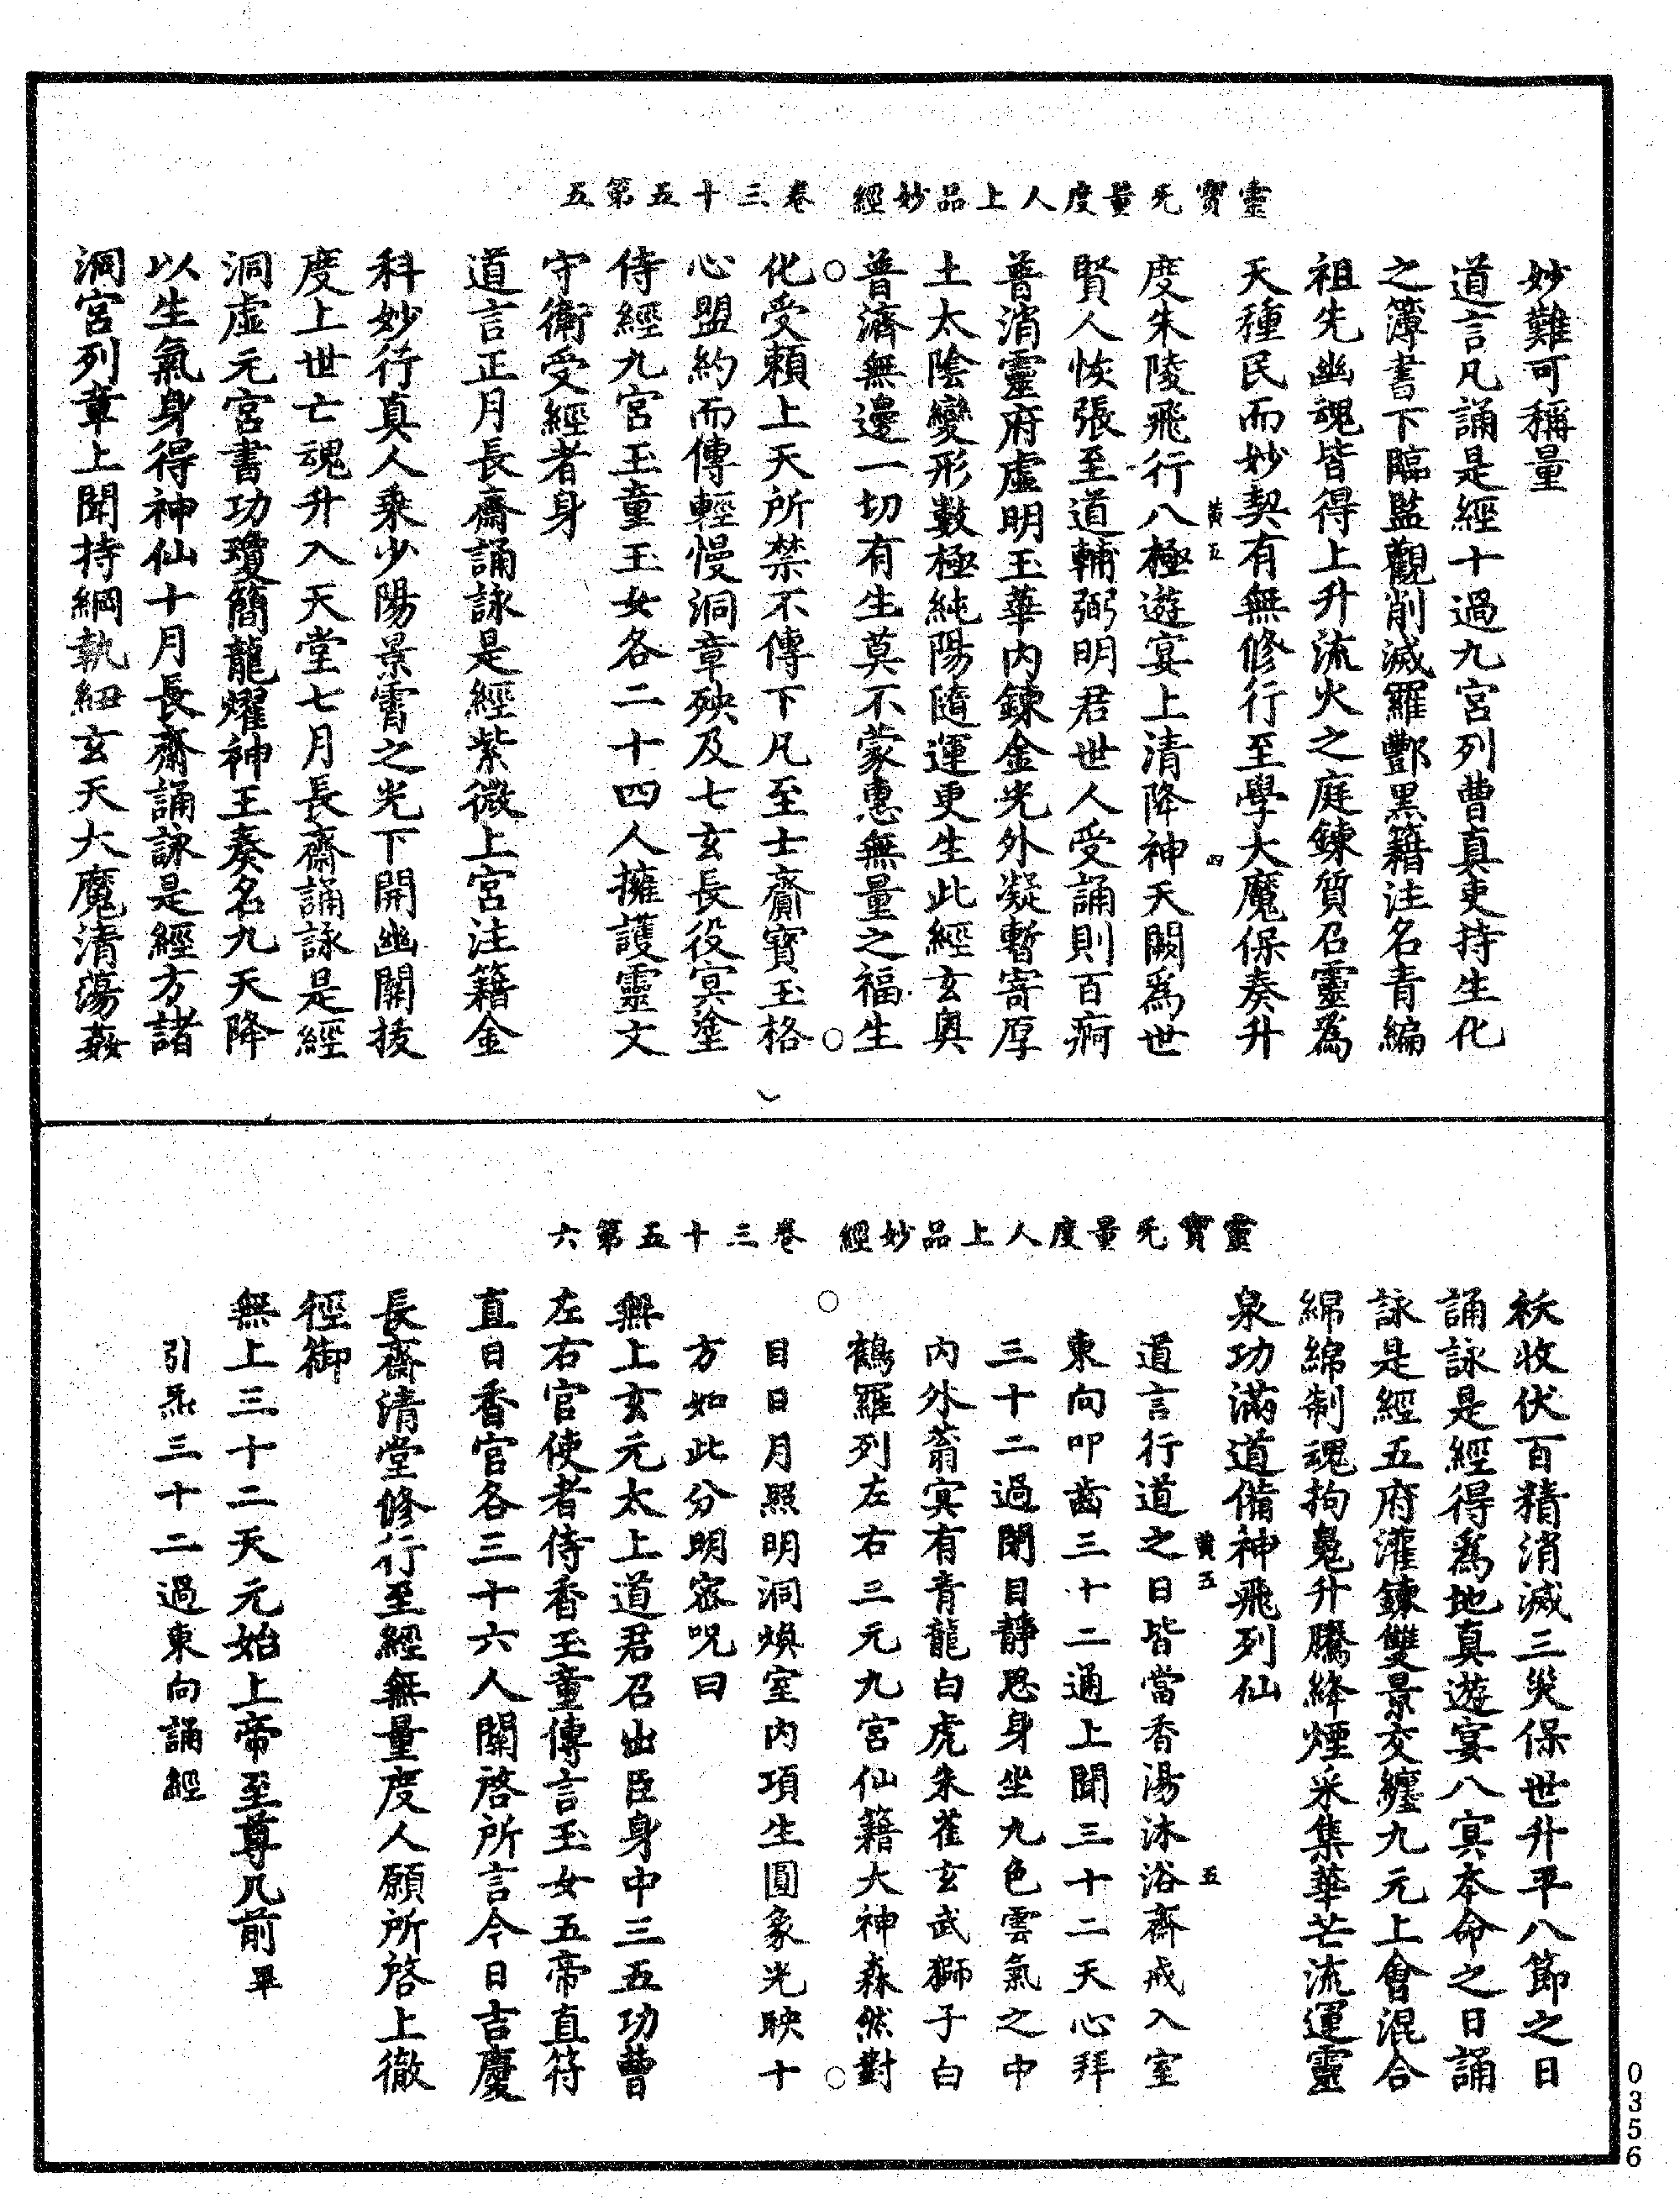 靈寶无量度人上品妙經　卷三十五第五
妙難可稱量
道言凡誦是經十過九宮列曹真吏持生化
之簿書下臨監觀削滅羅酆黑籍注名青編
祖先幽魂皆得上升流火之庭鍊質召靈爲
天種民而妙契有無修行至學大魔保奏升
黃五　四
度朱陵飛行八極遊宴上清降神天闕爲世
賢人恢張至道輔弼明君世人受誦則百痾
普消靈府虛明玉華內鍊金光外凝暫寄厚
土太陰變形數極純陽隨運更生此經玄奧
普濟無邊一切有生莫不蒙惠無量之福生
化受賴上天所禁不傳下凡至士齎寶玉格
心盟約而傳輕慢洞章殃及七玄長役冥塗
侍經九宮玉童玉女各二十四人擁護靈文
守衛受經者身
道言正月長齋誦詠是經紫微上宮注籍金
科妙行真人乘少陽景霄之光下開幽關拔
度上世亡魂升入天堂七月長齋誦詠是經
洞虛元宮書功瓊簡龍耀神王奏名九天降
以生氣身得神仙十月長齋誦詠是經方諸
洞宮列章上聞持綱執紐玄天大魔清蕩姦
靈寶无量度人上品妙經　卷三十五第六
祅收伏百精消滅三災保世升平八節之日
誦詠是經得爲地真遊宴八冥本命之日誦
詠是經五府灌鍊雙景交纏九元上會混合
綿綿制魂拘魄升騰絳煙采集華芒流運靈
泉功滿道備神飛列仙
黃五　五
道言行道之日皆當香湯沐浴齋戒入室
東向叩齒三十二通上聞三十二天心拜
三十二過閉目靜思身坐九色雲氣之中
內外蓊冥有青龍白虎朱雀玄武獅子白
鶴羅列左右三元九宮仙籍大神森然對
目日月照明洞煥室內項生圓象光映十
方如此分明密呪曰
無上玄元太上道君召出臣身中三五功曹
左右官使者侍香玉童傳言玉女五帝直符
直日香官各三十六人關啓所言今日吉慶
長齋清堂修行至經無量度人願所啓上徹
徑御
無上三十二天元始上帝至尊几前畢
引炁三十二過東向誦經
0356